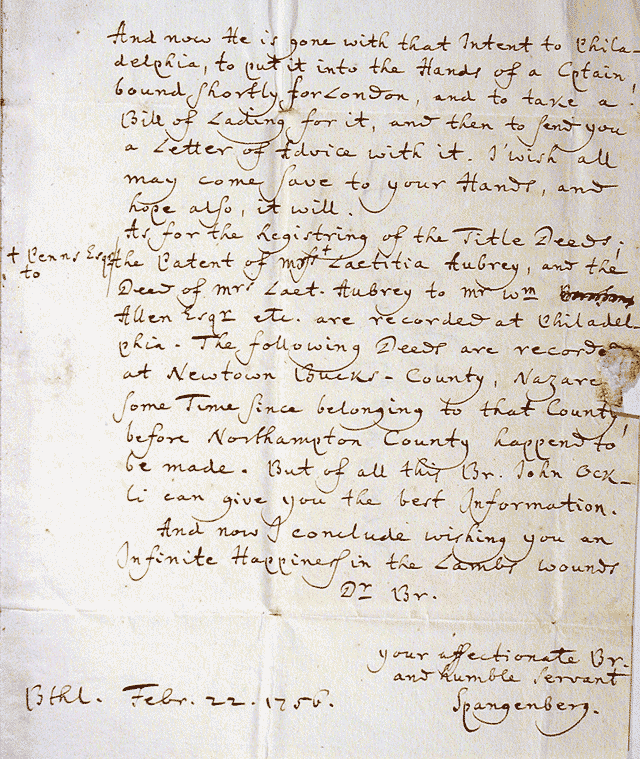 And now He is gone with that Intent to Phila-
delphia, to put it into the Hands of a Cptain,
bound shortly for London, and to take a
Bill of Lading for it, and then to send you
a Letter of Advice with it. I wish all
may come save to your Hands, and
hope also, it will.
As for the Registring of the Title Deeds;
+ Penns Esqr
to
the Patent of + Laetitia Aubrey, and the
Deed of mrs Laet. Aubrey to mr Wm
Allen Esqr etc. are recorded at Philadel
phia. The following Deeds are recorded
at Newtown Bucks-County, Nazare
some Time since belonging to that County,
before Northampton County happend to
be made. But of all this Br. John Ock-
li can give you the best Information.
And now I conclude wishing you an
Infinite Happiness in the Lambs wounds
Dr Br.
your affectionate Br.
and humble Servant
Bthl. Febr. 22. 1756.
Spangenberg.